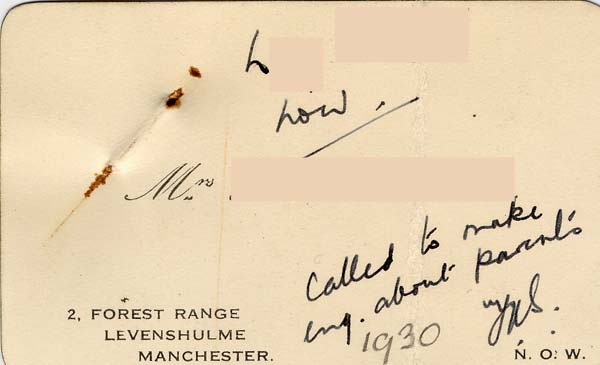 to
now.
Mrs
Called to make
enq. about parents
1930
2, FOREST RANGE
LEVENSHULME
MANCHESTER.
N. O. W.